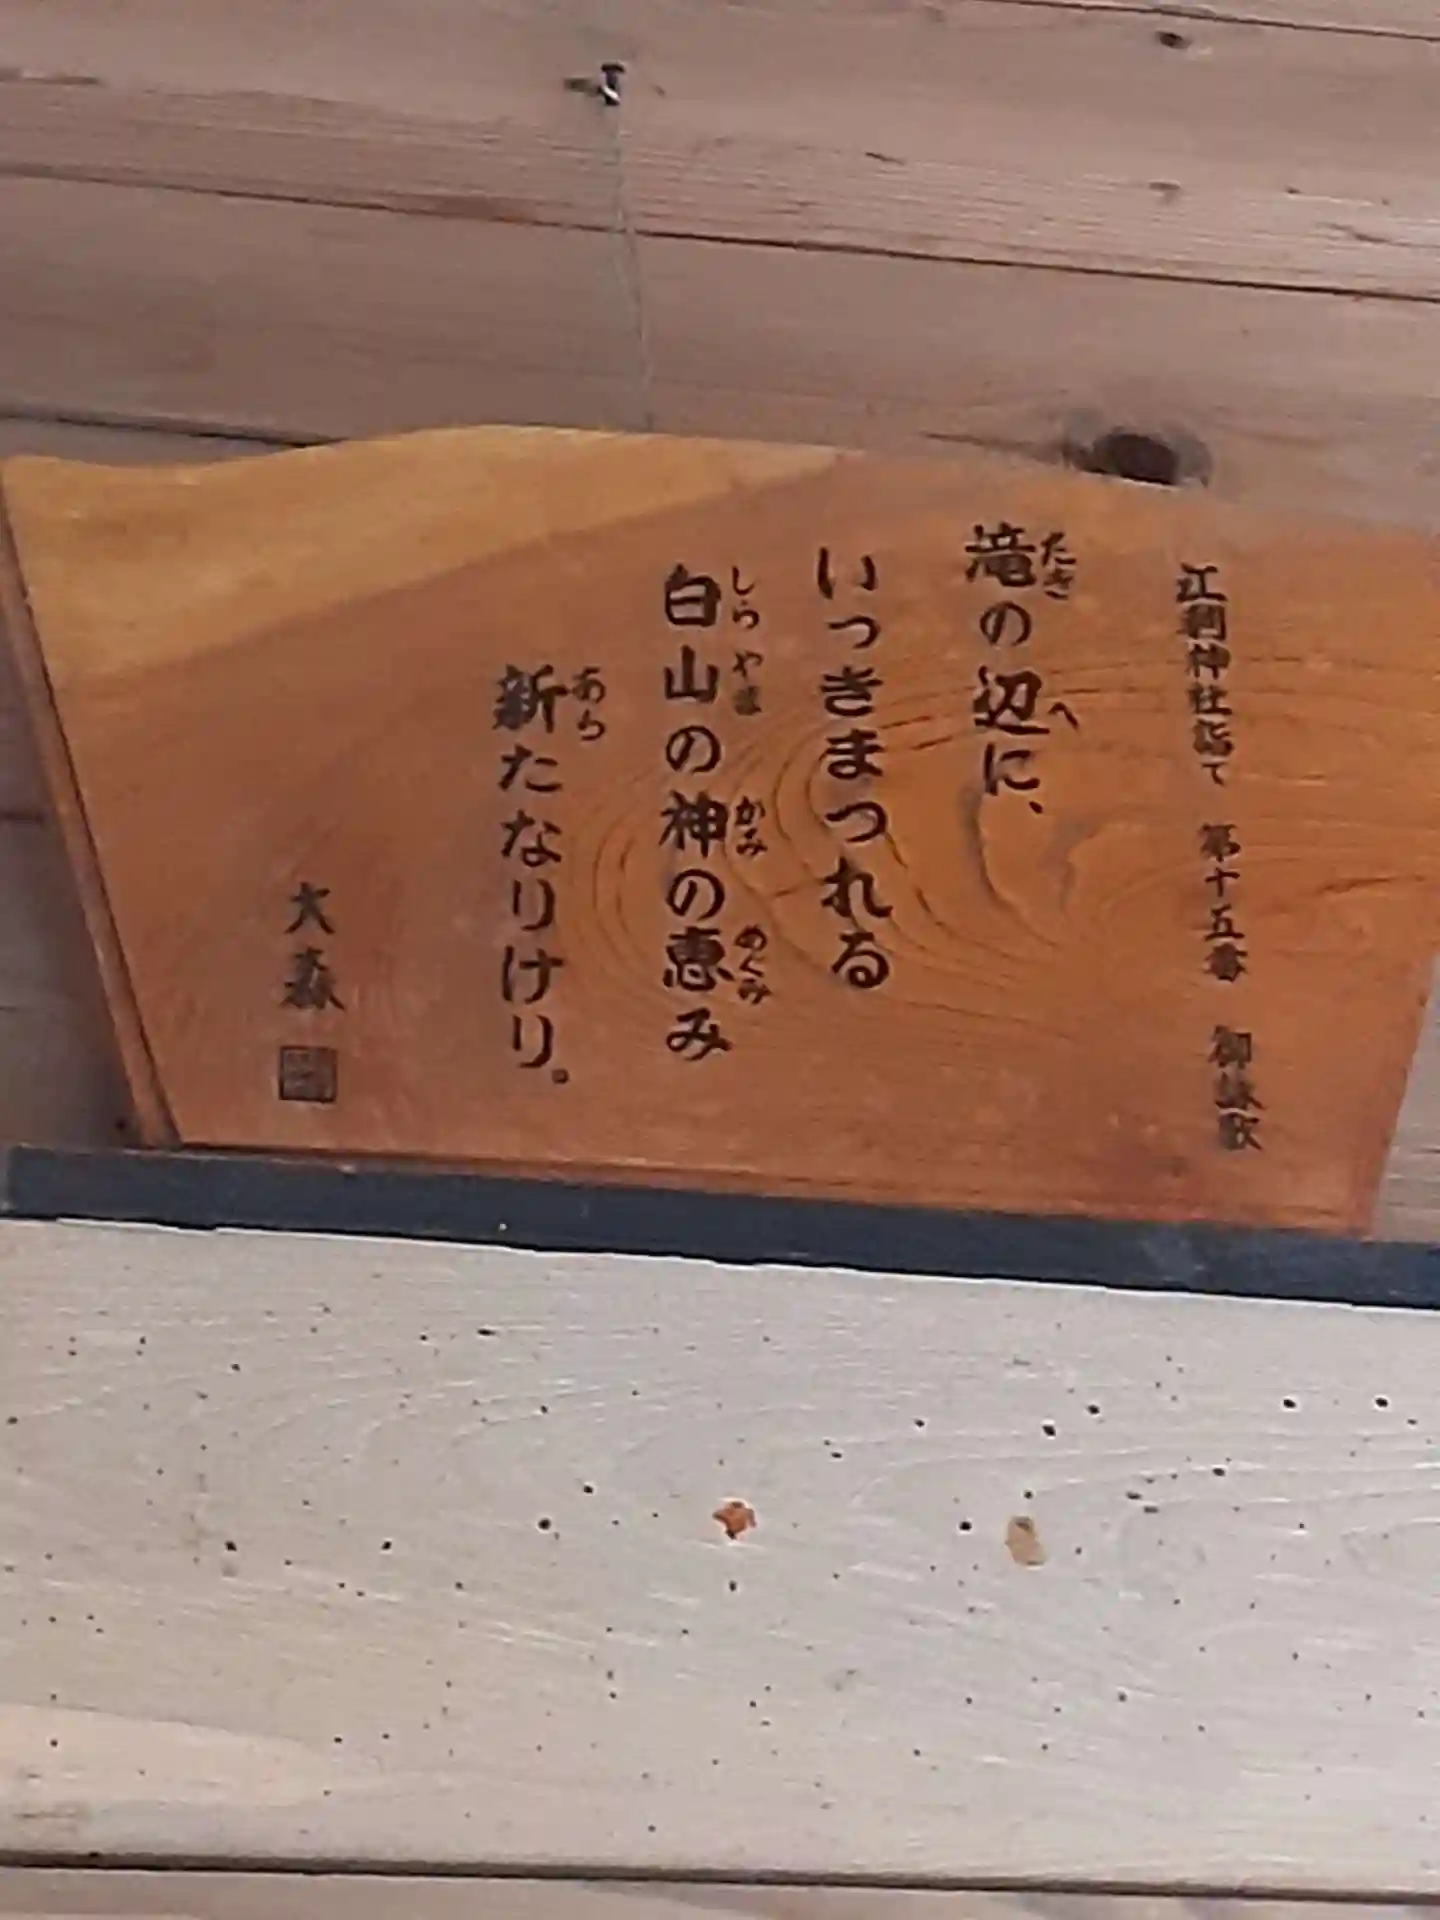 江刺神社詣で　第十五番　御詠歌
滝の辺に、
たき　へ
いつきまつれる
白山の神の恵み
しら やま　かみ　めぐみ
新たなりけり。
あら
大森